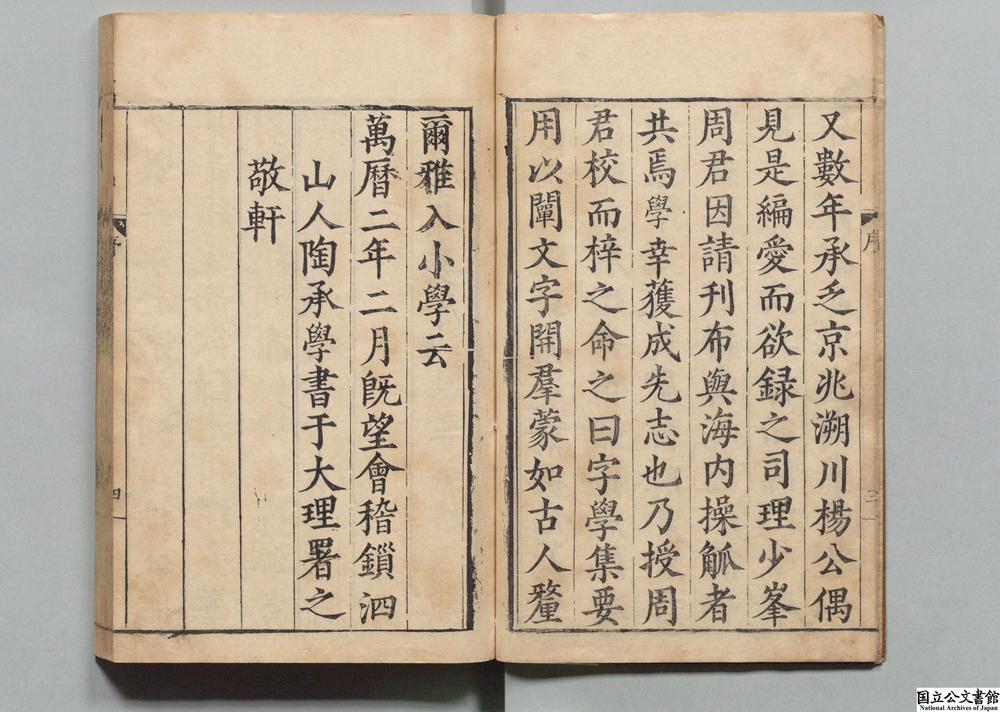 又數年承乏京兆溯川楊公偶
見是編愛而欲録之司理少峯
周君因請刊布與海内操觚者
共焉學幸獲成先志也乃授周
君校而梓之命之曰字學集要
用以闡文字開羣蒙如古人釐
爾雅入小學云
萬曆二年二月既望會稽鎖泗
山人陶承學書于大理署之
敬軒
序
三
序
四
国立公文書館
National Archives of Japan